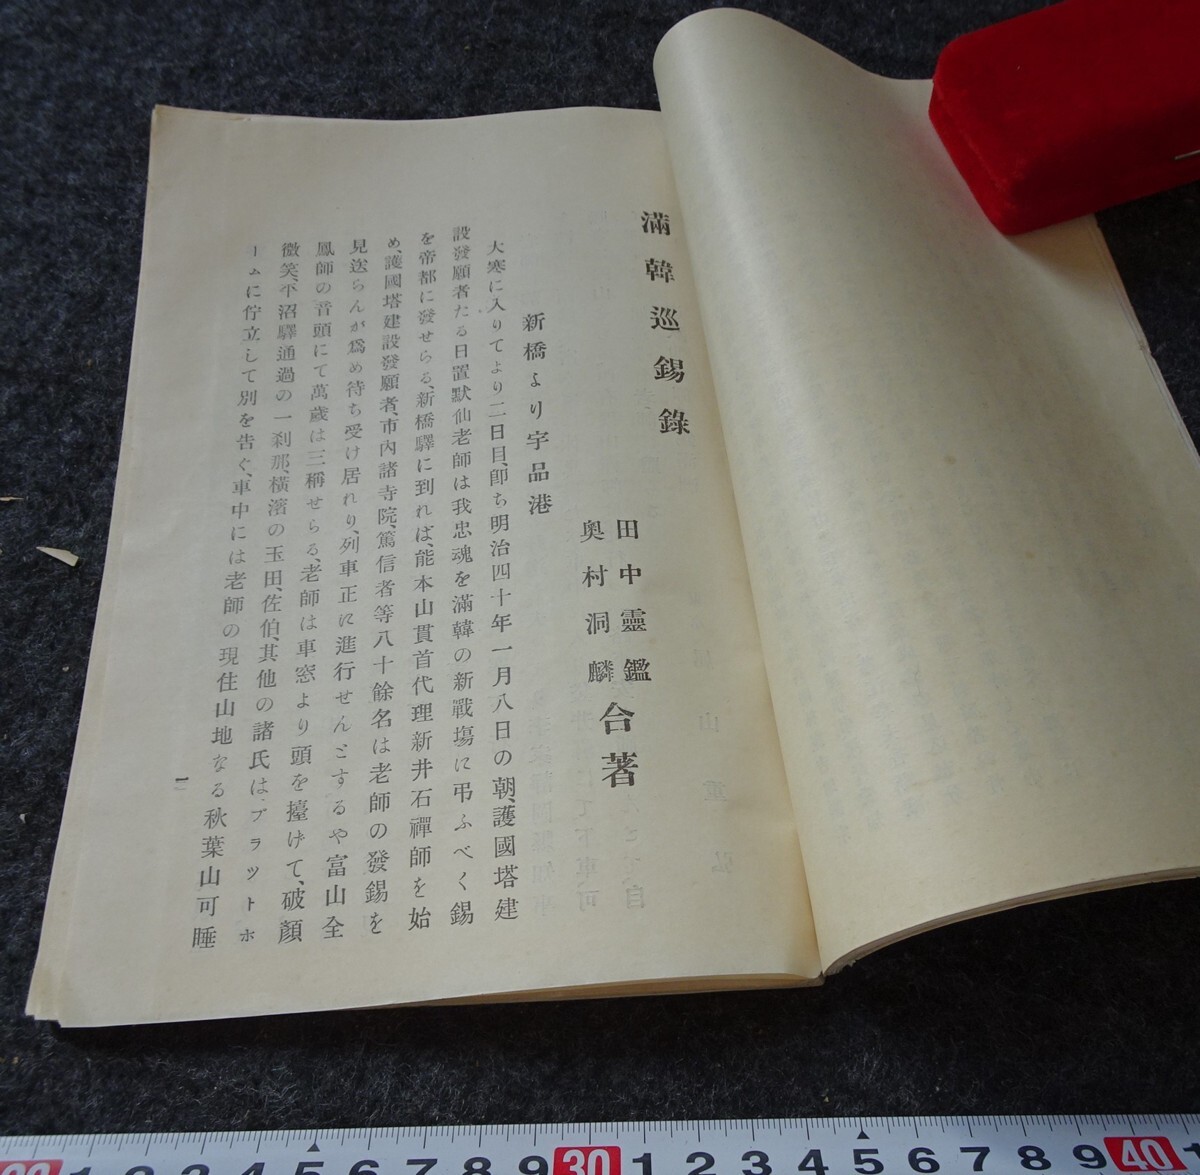 滿韓巡錫錄
田中靈鑑
奧村洞麟
合著
新橋より宇品港
大寒に入りてより二日目、卽ち明治四十年一月八日の朝、護國塔建
設發願者たる日置默仙老師は我忠魂を滿韓の新戰塲に弔ふべく錫
を帝都に發せらる、新橋驛に到れば、能本山貫首代理新井石禪師を始
め、護國塔建設發願者、市内諸寺院、篤信者等八十餘名は老師の發錫を
見送らんが爲め待ち受け居れり、列車正に進行せんとするや富山全
鳳師の音頭にて萬歲は三稱せらる、老師は車窓より頭を擡げて、破顏
微笑、平沼驛通過の一刹那、橫濱の玉田、佐伯、其他の諸氏は、プラットホ
ームに佇立して別を告ぐ、車中には老師の現住山地なる秋葉山可睡
一
1 2 3 4 5 6 7 8 9 30 1 2 3 4 5 6 7 8 9 40 1